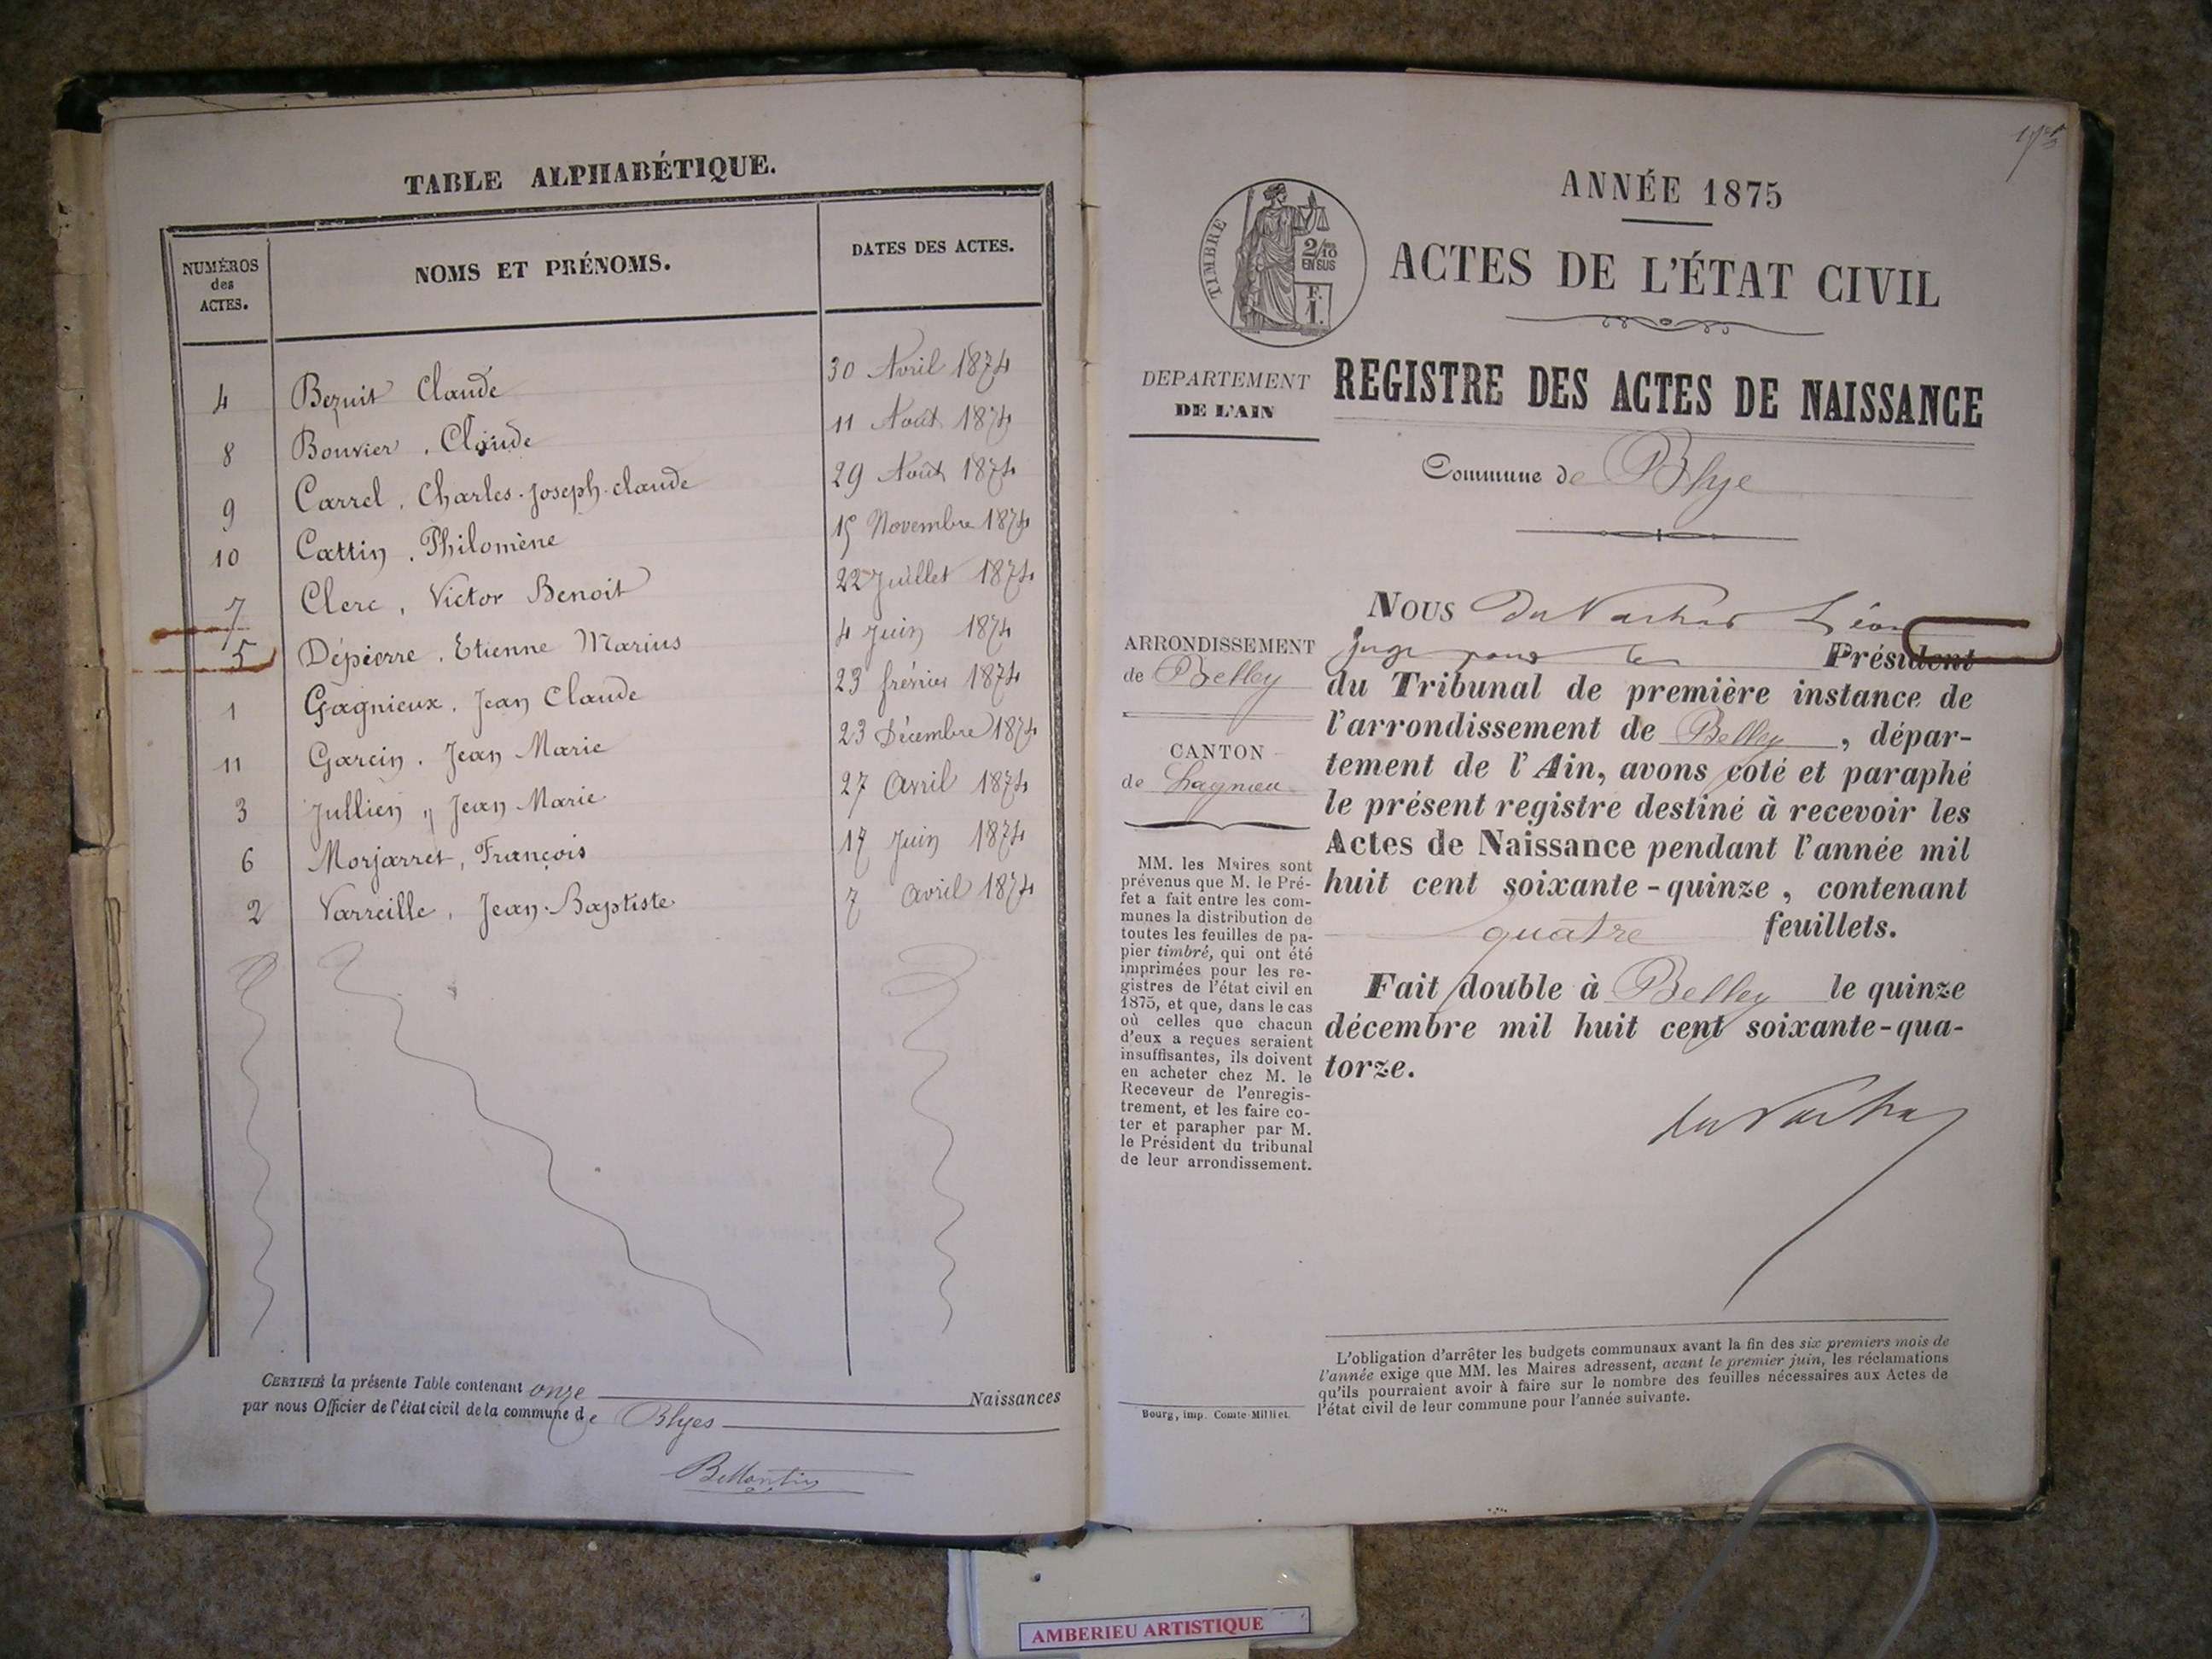 TABLE ALPHABÉTIQUE.
NUMÉROS des ACTES.
NOMS ET PRÉNOMS.
DATES DES ACTES.
4 Bezuit Claude 30 Avril 1874
8 Bouvier, Claude 11 Août 1874
9 Carrel, Charles-Joseph-Claude 29 Août 1874
10 Cattin, Philomène 15 Novembre 1874
7 Clerc, Victor Benoit 22 Juillet 1874
5 Dépierre, Etienne Marius 4 Juin 1874
1 Gagnieux, Jean Claude 23 février 1874
11 Garcin, Jean Marie 23 Décembre 1874
3 Jullien, Jean Marie 27 Avril 1874
6 Morjarret, François 17 Juin 1874
2 Varreille, Jean-Baptiste 7 avril 1874
CERTIFIÉ la présente Table contenant onze Naissances
par nous Officier de l'état civil de la commune de Blyes
ANNÉE 1875
ACTES DE L'ÉTAT CIVIL
TIMBRE
2/10 EN SUS
F. 1.
DEPARTEMENT
DE L'AIN
REGISTRE DES ACTES DE NAISSANCE
Commune de Blye
ARRONDISSEMENT
de Belley
CANTON
de Lagnieu
MM. les Maires sont
prévenus que M. le Pré-
fet a fait entre les com-
munes la distribution de
toutes les feuilles de pa-
pier timbré, qui ont été
imprimées pour les re-
gistres de l'état civil en
1875, et que, dans le cas
où celles que chacun
d'eux a reçues seraient
insuffisantes, ils doivent
en acheter chez M. le
Receveur de l'enregis-
trement, et les faire co-
ter et parapher par M.
le Président du tribunal
de leur arrondissement.
NOUS Léon
juge pour le Président
du Tribunal de première instance de
l'arrondissement de Belley, dépar-
tement de l'Ain, avons coté et paraphé
le présent registre destiné à recevoir les
Actes de Naissance pendant l'année mil
huit cent soixante-quinze, contenant
quatre feuillets.
Fait double à Belley le quinze
décembre mil huit cent soixante-qua-
torze.
L'obligation d'arrêter les budgets communaux avant la fin des six premiers mois de
l'année exige que MM. les Maires adressent, avant le premier juin, les réclamations
qu'ils pourraient avoir à faire sur le nombre des feuilles nécessaires aux Actes de
l'état civil de leur commune pour l'année suivante.
Bourg, imp. Comte-Milliet.
AMBERIEU ARTISTIQUE